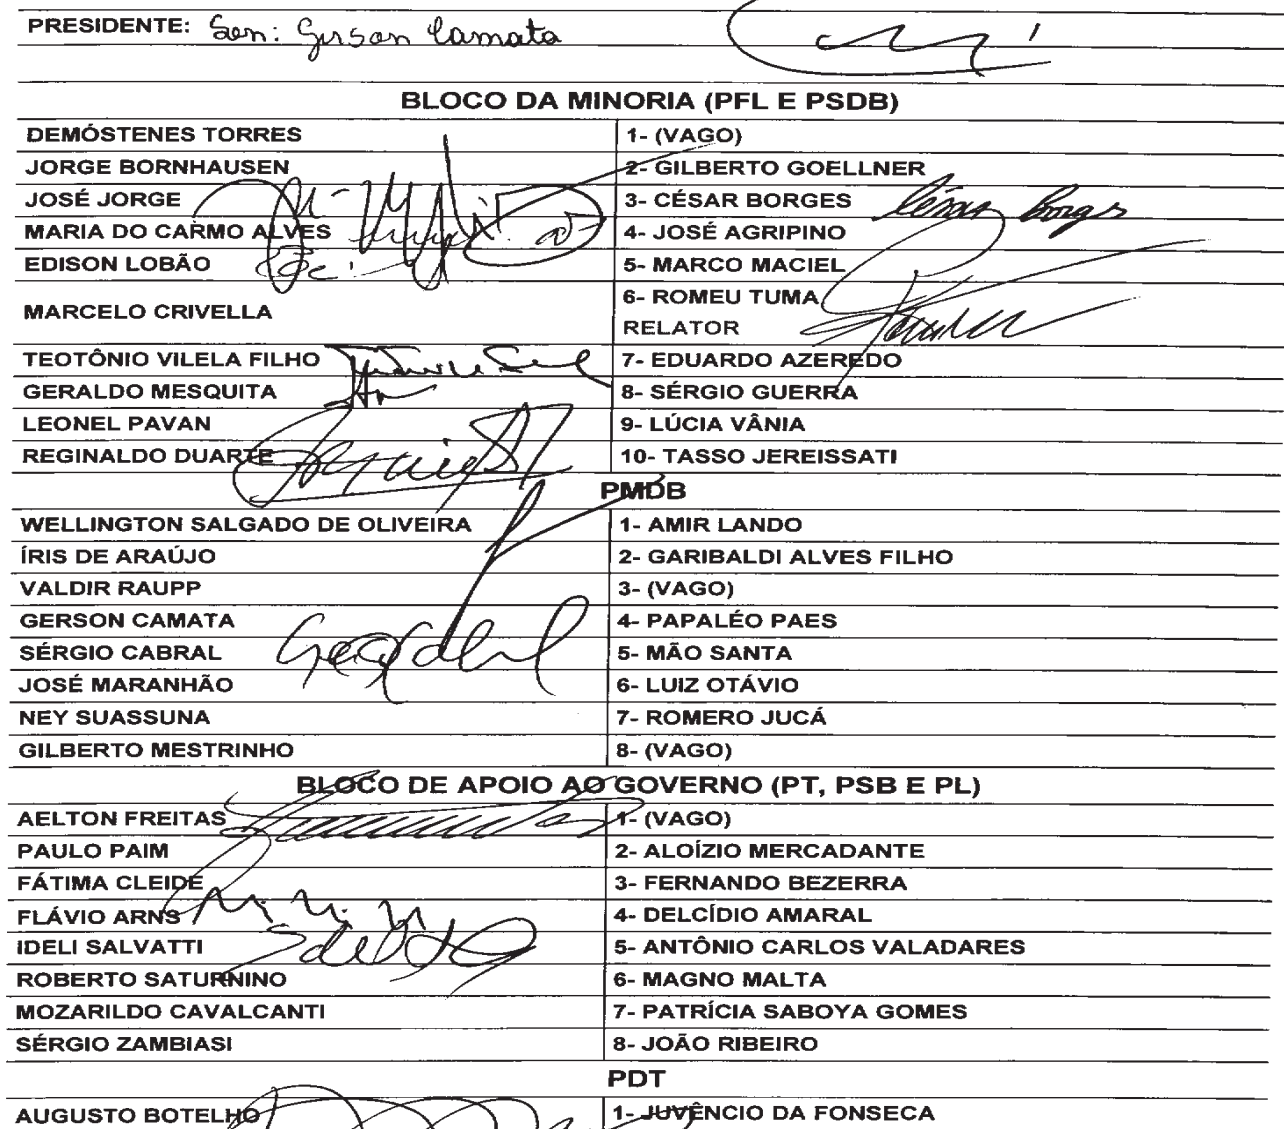 PRESIDENTE: Sen: Gerson Camata
BLOCO DA MINORIA (PFL E PSDB)
DEMÓSTENES TORRES 1- (VAGO)
JORGE BORNHAUSEN 2- GILBERTO GOELLNER
JOSÉ JORGE 3- CÉSAR BORGES César Borges
MARIA DO CARMO ALVES 4- JOSÉ AGRIPINO
EDISON LOBÃO 5- MARCO MACIEL
MARCELO CRIVELLA 6- ROMEU TUMA
RELATOR
TEOTÔNIO VILELA FILHO 7- EDUARDO AZEREDO
GERALDO MESQUITA 8- SÉRGIO GUERRA
LEONEL PAVAN 9- LÚCIA VÂNIA
REGINALDO DUARTE 10- TASSO JEREISSATI
PMDB
WELLINGTON SALGADO DE OLIVEIRA 1- AMIR LANDO
ÍRIS DE ARAÚJO 2- GARIBALDI ALVES FILHO
VALDIR RAUPP 3- (VAGO)
GERSON CAMATA 4- PAPALÉO PAES
SÉRGIO CABRAL 5- MÃO SANTA
JOSÉ MARANHÃO 6- LUIZ OTÁVIO
NEY SUASSUNA 7- ROMERO JUCÁ
GILBERTO MESTRINHO 8- (VAGO)
BLOCO DE APOIO AO GOVERNO (PT, PSB E PL)
AELTON FREITAS 1- (VAGO)
PAULO PAIM 2- ALOÍZIO MERCADANTE
FÁTIMA CLEIDE 3- FERNANDO BEZERRA
FLÁVIO ARNS 4- DELCÍDIO AMARAL
IDELI SALVATTI 5- ANTÔNIO CARLOS VALADARES
ROBERTO SATURNINO 6- MAGNO MALTA
MOZARILDO CAVALCANTI 7- PATRÍCIA SABOYA GOMES
SÉRGIO ZAMBIASI 8- JOÃO RIBEIRO
PDT
AUGUSTO BOTELHO 1- JUVÊNCIO DA FONSECA